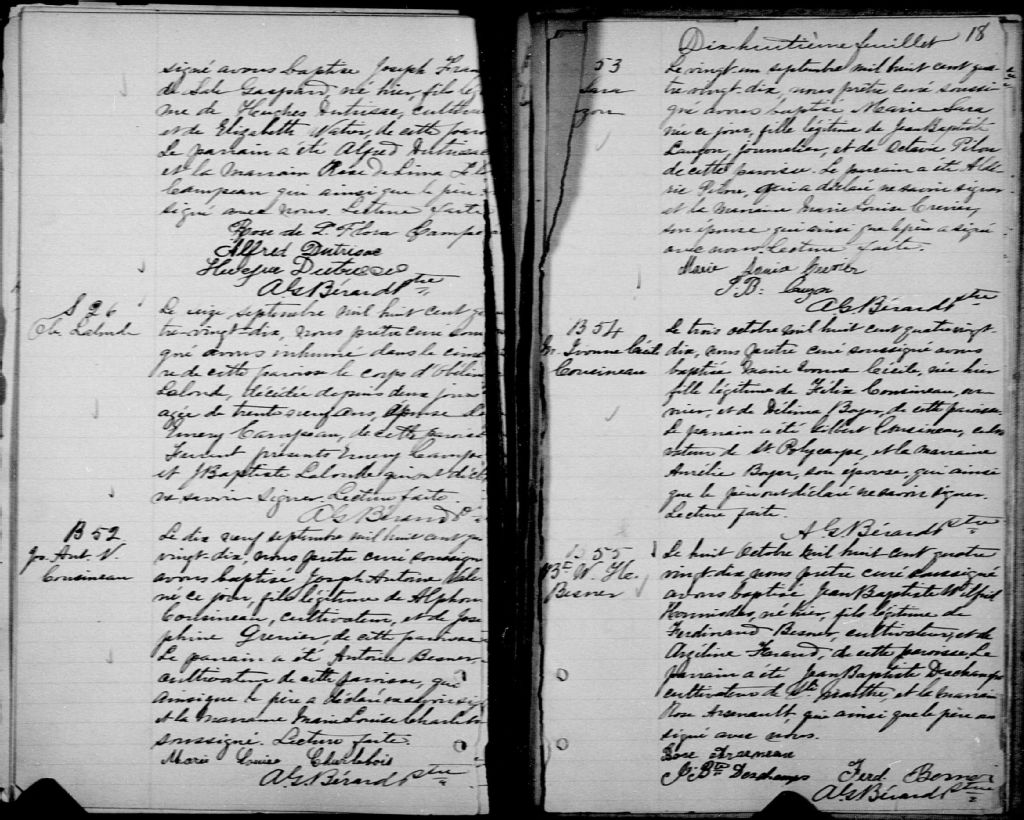 signé avons baptisé Joseph Fran
de Sale Gaspard, né hier, fils lég
me de Hughes Dutrisac, cultiva
et de Elizabeth de cette paroi
Le parrain a été Alfred Dutrisac
et la Marraine Rose de Lima
Campeau qui ainsi que le père
signé avec nous. Lecture faite
Rose de L Flora Campe
Alfred Dutrisac
Dutrisac
A G Bérard Ptre
S 26
Lalonde
Le septembre mil huit cent qua
tre-vingt-dix, nous prêtre curé sous
gné avons inhumé dans le cime
re de cette paroisse le corps d'
Lalonde, décédée depuis deux jours
agée de trente neuf ans, épouse de
Emery Campeau, de cette paroisse
Furent présents Emery Campe
et J Baptiste Lalonde qui ont décl
ne savoir signer. Lecture faite.
A G Bérard Ptre
B 52
Js. Ant. V.
Cousineau
Le dix neuf septembre mil huit cent qu
vingt-dix, nous prêtre curé soussign
avons baptisé Joseph Antoine
né ce jour, fils légitime de Alphon
Cousineau, cultivateur, et de Jose
phine Grenier, de cette paroisse
Le parrain a été Antoine Besner
cultivateur de cette paroisse, qui
ainsi que le père a déclaré ne savoir sig
et la marraine Marie Louise Charlebo
soussigné. Lecture faite.
Marie Louise Charlebois
A G Bérard Ptre
Dix huitième feuillet 18
53
Sara
zon
Le vingt-un septembre mil huit cent qua-
tre vingt-dix, nous prêtre curé soussi-
gné avons baptisé Marie Sara
née ce jour, fille légitime de Jean Baptiste
Lauzon, journalier, et de Octavie Pilon
de cette paroisse. Le parrain a été
Pilon, qui a déclaré ne savoir signer
et la Marraine Marie Louise Crevier,
son épouse qui ainsi que le père a signé
avec nous. Lecture faite.
Marie Louise Crevier
J. B. Lauzon
A G Bérard Ptre
B 54
M. Ivonne Cécile
Cousineau
Le trois octobre mil huit cent quatre vingt-
dix, nous prêtre curé soussigné avons
baptisé Marie Ivonne Cécile, née hier
fille légitime de Félix Cousineau,
et de Délima Boyer, de cette paroisse
Le parrain a été Cousineau, culti
vateur de St Polycarpe, et la marraine
Aurélie Boyer, son épouse, qui ainsi
que le père ont déclaré ne savoir signer.
Lecture faite.
A G Bérard Ptre
B 55
W. H.
Besner
Le huit Octobre mil huit cent quatre
vingt-dix nous prêtre curé soussigné
avons baptisé Jean Baptiste Wilfrid
Hormisdas, né hier, fils légitime de
Ferdinand Besner, cultivateur, et de
Azilina de cette paroisse. Le
parrain a été Jean Baptiste Deschamps
cultivateur de Ste Marthe, et la marraine
Rose Arsenault qui ainsi que le père ont
signé avec nous.
Rose Arseneau
J. Bte Deschamps Ferd. Besner
A G Bérard Ptre